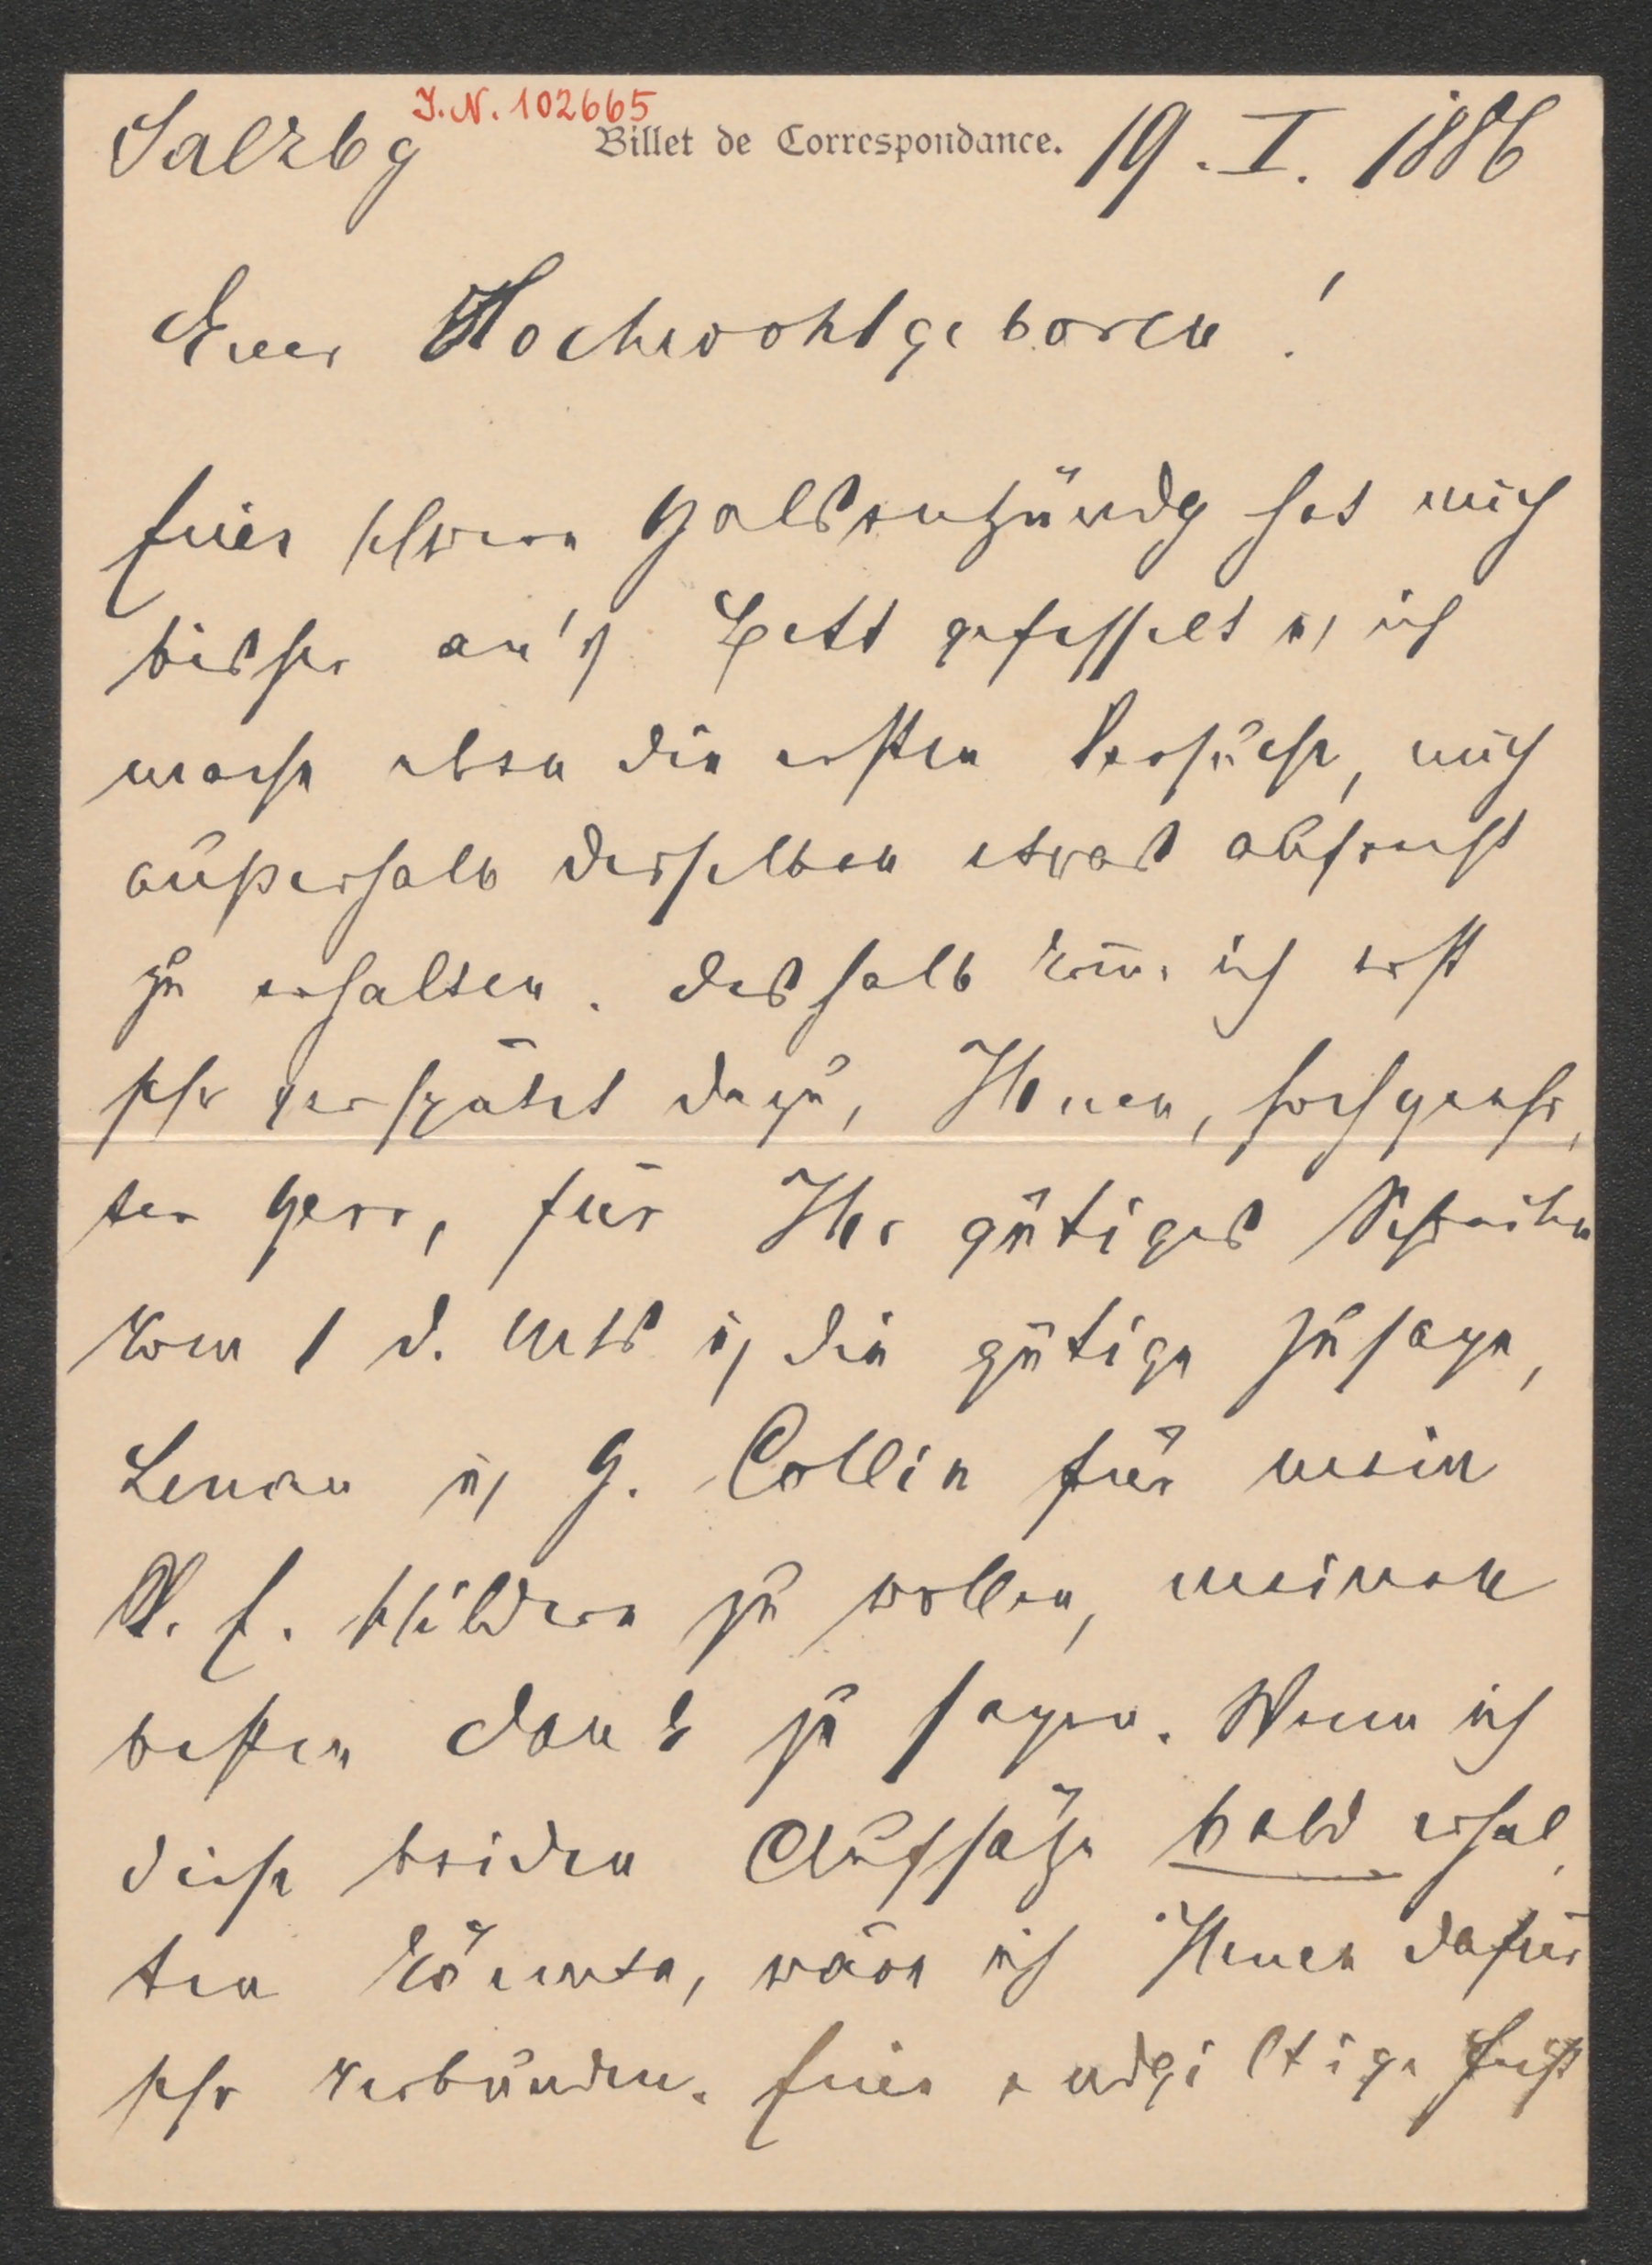 J.N. 102665
Salzbg Billet de Correspondance. 19. I. 1886
Euer Hochwohlgeboren!
Eine schwere Halsentzündg hat mich
bisher an's Bett gefesselt u, ich
mache eben die ersten Versuche, mich
außerhalb desselben etwas aufrecht
zu erhalten. Deshalb kom̄e ich erst
sehr verspätet dazu, Ihnen, hochgeehr,
ter Herr, für Ihr gütiges Schreiben
vom 1 d. Mts u, die gütige Zusage,
Lenau u, H. Collin für mein
A. E. schildern zu wollen, meinen
besten Dank zu sagen. Wenn ich
diese beiden Aufsätze bald erhal,
ten könnte, wäre ich Ihnen dafür
sehr verbunden. Eine endgiltige Frist